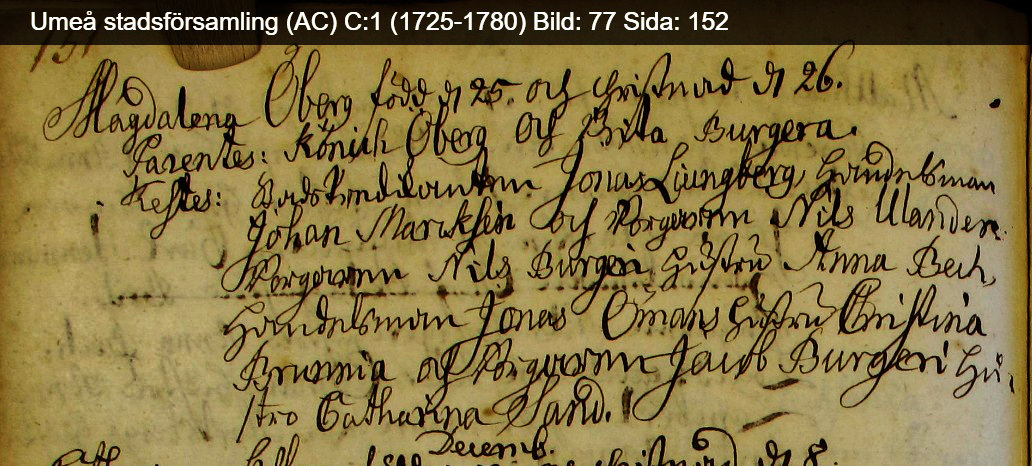 Umeå stadsförsamling (AC) C:1 (1725-1780) Bild: 77 Sida: 152
151
Magdalena Öberg född d 25. och christnad d 26.
Parentes: Könick Öberg och Brita Burgera.
Testes: Jonas Liungberg, Handelsman
Johan Marcksén och Borgaren Nils Ulander.
Borgaren Nils Burgeri Hustru Anna Bech,
Handelsman Jonas Ömans Hustru Christina
Brunnia och Borgaren Jacob Burgeri Hu-
stro Catharina Sand.
Decemb.
christnad d 8.